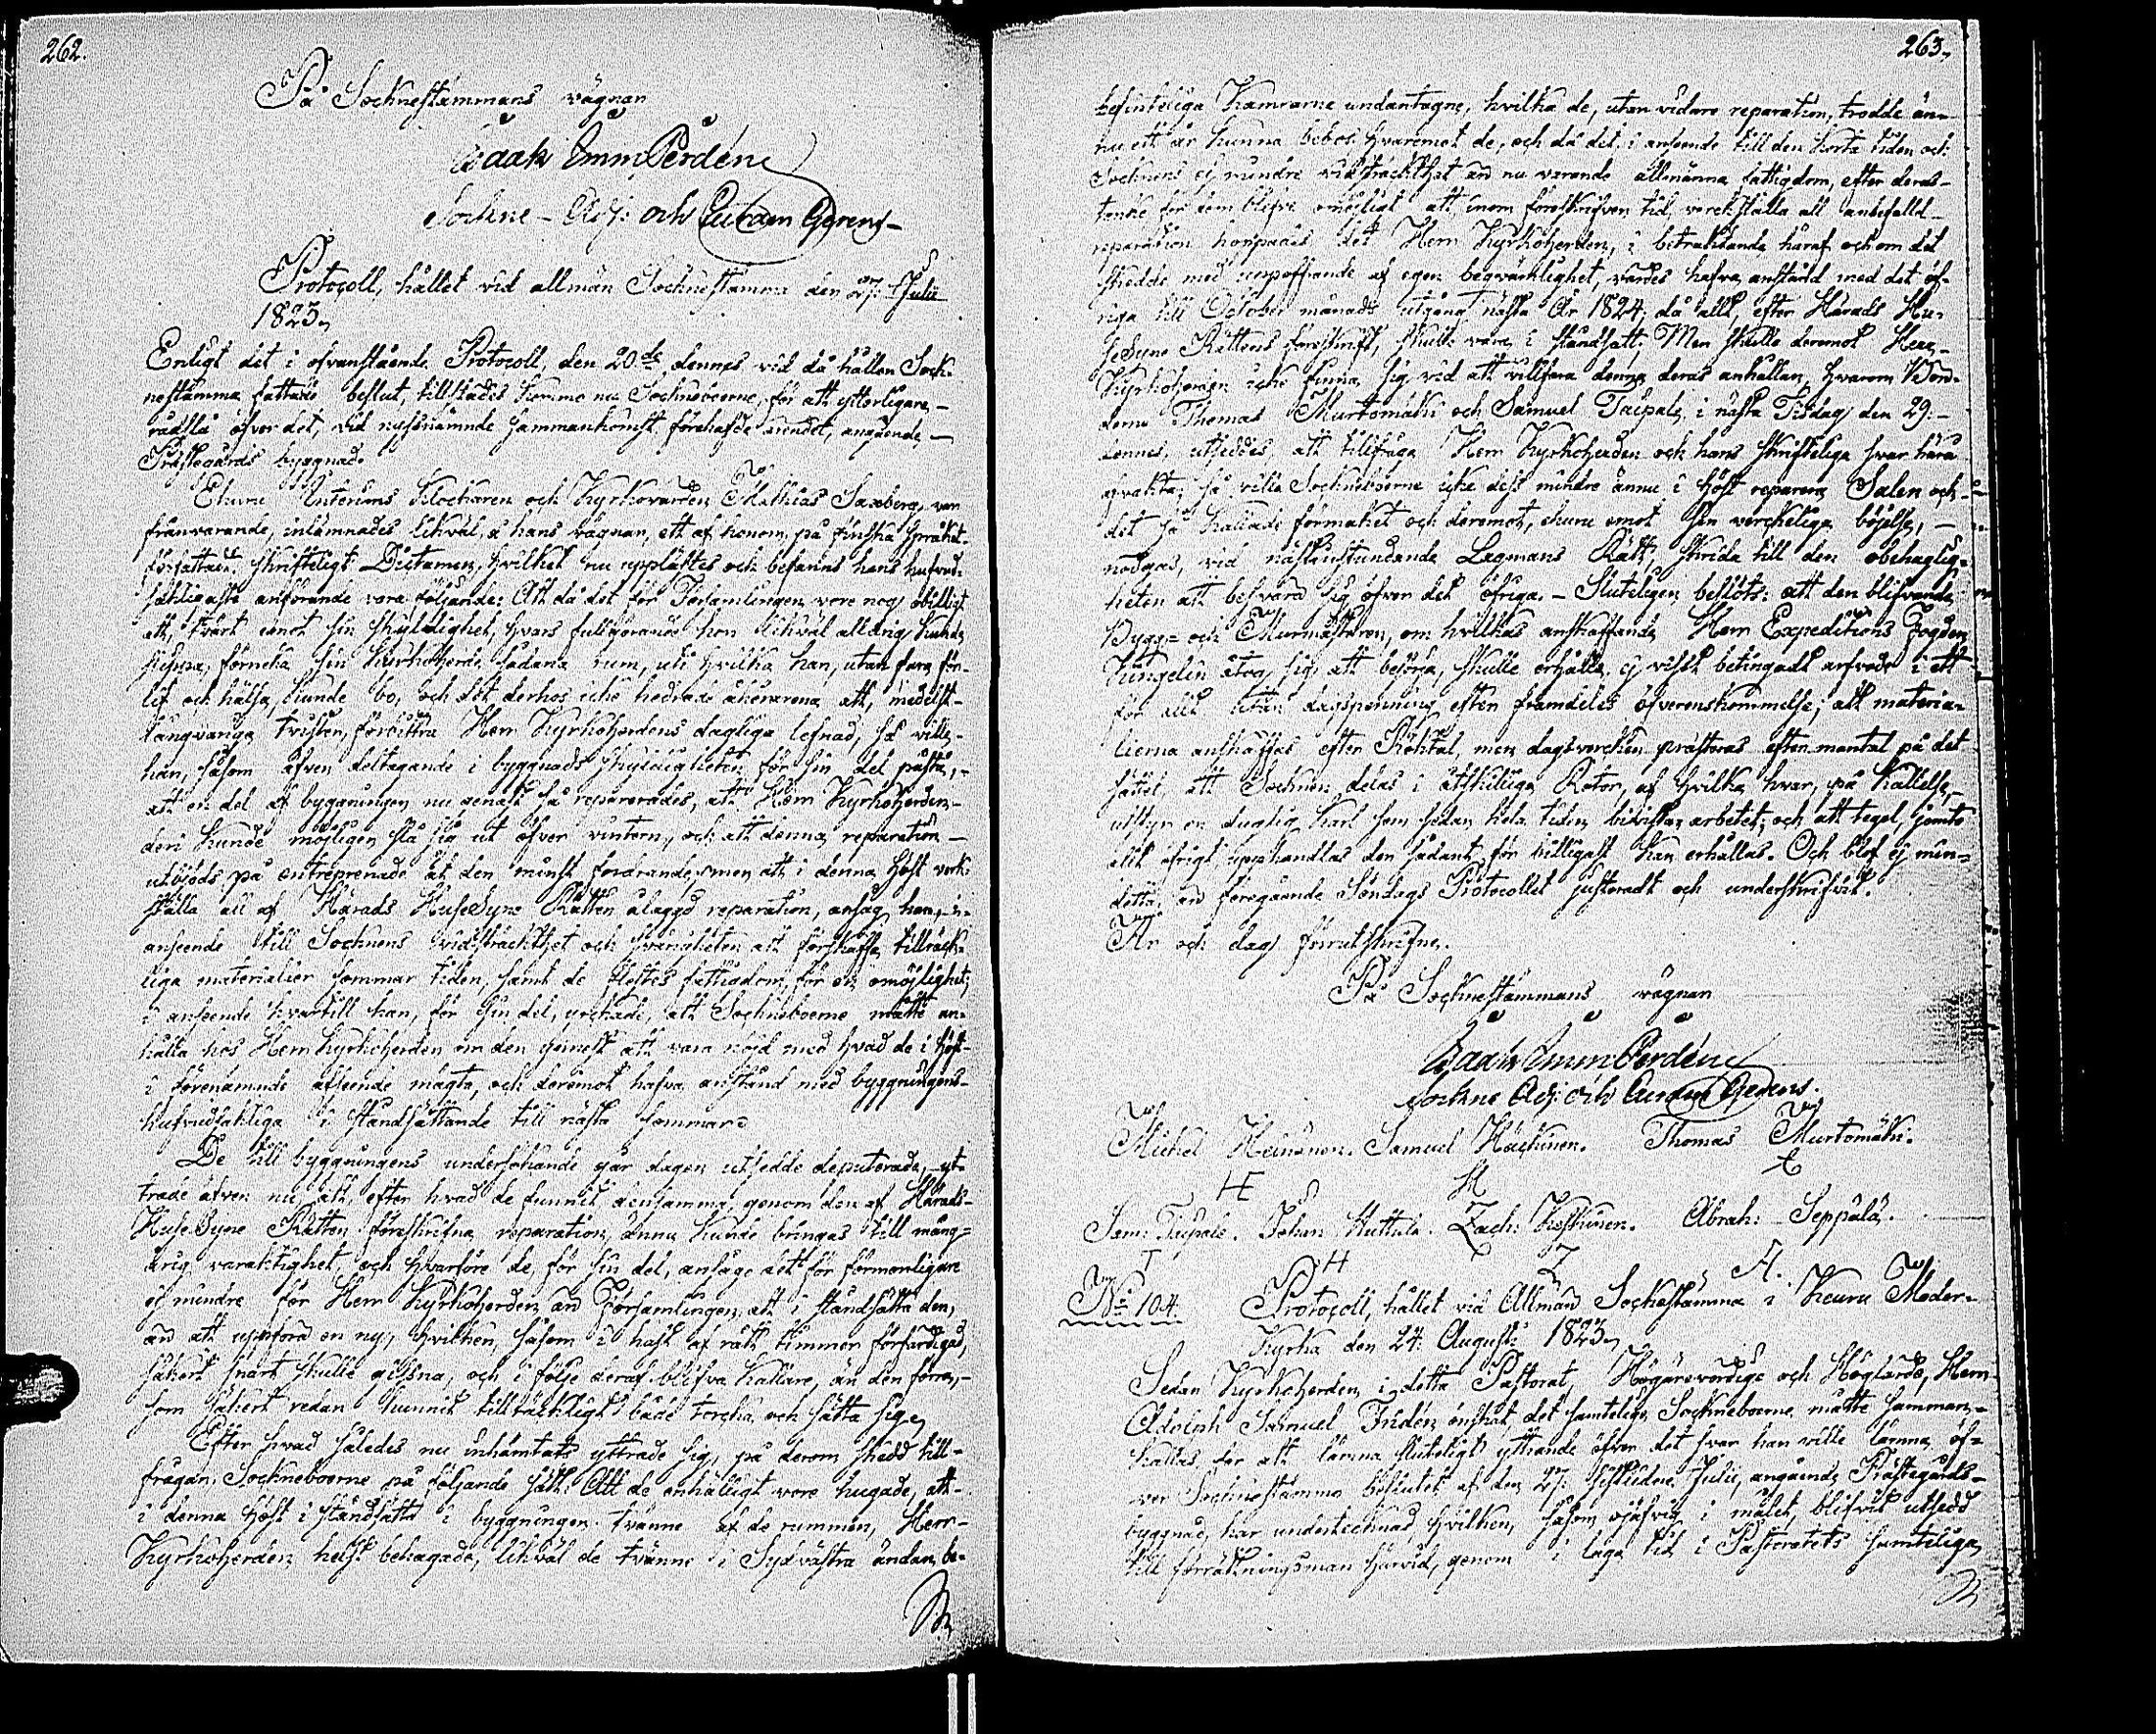 262.
På Socknestämmans vägnar
Isaak Emm: Perdén
Sockne-Adj: och Curam Gerens
Protocoll, hållet vid allmän Socknestämma den 27: Julii
1823.
Enligt det, i ofvanstående Protocoll, den 20de dennes vid då hållen Sock-
nestämma fattade beslut, tillstädes kommo nu Sockneboerne, för att ytterligare
rådslå öfver det, vid nyssnämnde sammankomst förehafde ärendet, angående
Prästegårds byggnad.
Ehuru Interims Klockaren och Kyrkovärden Mathias Saxberg, var
frånvarande, inlämnades likväl, å hans vägnar, ett af honom, på finska språket
författadt skrifteligt Dictamen, hvilket nu upplästes och befanns hans hufvud-
sakligaste anförande vara följande: Att då det för Församlingen vore nog obilligt
att, tvärt emot sin skyldighet, hvars fullgörande hon likväl alldrig kunde
slippa, förneka sin Kyrkoherde sådana rum, uti hvilka han, utan fara för
lif och hälsa, kunde bo, och det derhos icke hedrade åhörarena att, medelst
långvariga tvister, förbittra Herr Kyrkoherdens dagliga lefnad, så ville
han, såsom äfven deltagande i byggnads skyldigheten för sin del påstå,
att en del af byggningen nu genast så reparerades, att Herr Kyrkoherden
deri kunde möjligen slå sig ut öfver vintern, och att denna reparation
utbjöds på entreprenade åt den minst fordrande; men att i denna höst verk-
ställa all af Härads HuseSyne Rätten ålaggd reparation, ansåg han, i
anseende till Socknens vidsträckthet och svårigheten att förskaffa tillräck-
liga materialier sommar tiden, samt de flestes fattigdom, för en omöjlighet;
i anseende hvartill han, för sin del, yrckade, att Sockneboerne måtte an-
hålla hos Herr Kyrkoherden om den ynnest att vara nöjd med hvad de i höst
i förenämnde afseende mägta, och deremot hafva anstånd med byggningens
hufvudsakliga i ståndsättande till nästa sommar.
De till byggningens undersökande går dagen utsedde deputerade, ytt-
rade äfven nu, att, efter hvad de funnit densamma, genom den af Härads
HuseSyne Rätten föreskrifna reparation, ännu kunde bringas till mång-
årig varaktighet, och hvarföre de, för sin del, ansågo det för förmonligare
ej mindre för Herr Kyrkoherden än Församlingen, att i ståndsätta den,
än att uppföra en ny, hvilken, såsom i hast af rått timmer förfärdigad,
säkert snart skulle gistna, och i följe deraf blifva kallare, än den förra,
som säkert redan hunnit tillräckligt både torcka och sätta sig.
Efter hvad således nu inhämtats yttrade sig, på derom skedd till-
frågan, Sockneboerne på följande sätt: Att de enhälligt vore hugade, att
i denna höst i ståndsätta i byggningen tvänne af de rummen, Herr
Kyrkoherden helst behagade, likväl de tvänne i Sydvästra ändan, be-
263.
befinteliga Kamrarne undantagne, hvilka de, utan vidare reparation, trodde än-
nu ett år kunna bebos. Hvaremot de, och då det, i anseende till den korta tiden och
Socknens ej mindre vidsträckthet än nu varande allmänna fattigdom, efter deras
tanke för dem blefve omöjligt att inom föreskrifven tid verckställa all anbefalld
reparation, hoppades det Herr Kyrkoherden, i betraktande häraf och om det
skedde med uppoffrande af egen beqvämlighet, värdes hafva anstånd med det öf-
riga till October månads utgång nästa År 1824, då allt, efter Härads Hu-
seSyne Rättens föreskrift, skulle vara i ståndsatt; Men skulle deremot Herr
Kyrkoherden icke finna sig vid att villfara denna deras anhållan, hvarom Bön-
derne Thomas Murtomäki och Samuel Taipale, i nästa Tisdag den 29:
dennes, utseddes att tillfråga Herr Kyrkoherden och hans skrifteliga svar härå
afvakta; så ville Sockneboerne icke dess mindre ännu i höst reparera Salen och
det så kallade förmaket och deremot, ehuru emot sin verckeliga böjelse,
nödgas, vid nästinstundande Lagmans Rätt, skrida till den obehaglig-
heten att besvära sig öfver det öfriga. – Sluteligen beslöts: att den blifvande
Bygg- och Murmästaren, om hvilkas anskaffande Herr Expeditions Fogden
Ljungelin åtog sig att besörja, skulle erhålla ej visst betingadt arfvode i ett
för allt utan dagspenning efter framdeles öfverenskommelse; att materia-
lierna anskaffas efter Röktal, men dagsvercken presteras efter mantal på det
sättet, att Socknen delas i åtskilliga Rotor, af hvilka hvar, på kallelse,
utstyr en duglig Karl som sedan hela tiden bivistar arbetet; och att tegel, jemte
allt öfrigt, upphandlas der sådant för billigast kan erhållas. Och blef ej min-
detta, än föregående Söndags Protocollet justeradt och underskrifvit.
År och dag förutskrifne.
På Socknestämmans vägnar
Isaak Emm: Perdén
Sockne Adj: och Curam Gerens.
Michel Heinonen. Samuel Häckinen. Thomas Murtomäki.
H M t
Sam: Taipale. Johan Huttula. Zach: Keskinen. Abrah: Seppälä.
T H Z A.
No 104. Protocoll, hållet vid Allmän Sockestämma i Keuru Moder-
Kyrka den 24: Augusti 1823.
Sedan Kyrkoherden i detta Pastorat, Högärevördige och Höglärde, Herr
Adolph Samuel Fridén önskat, det samtelige Sockneboerne måtte samman-
kallas, för att lämna sluteligt yttrande öfver det svar han ville lämna öf-
ver Socknestämmo beslutet af den 27: sistledne Julii, angående Prästegårds-
byggnad, har undertecknad, hvilken, såsom ojäfvig i målet, blifvit utsedd
till förrättningsman härvid, genom i laga tid i Pastoratets samteliga